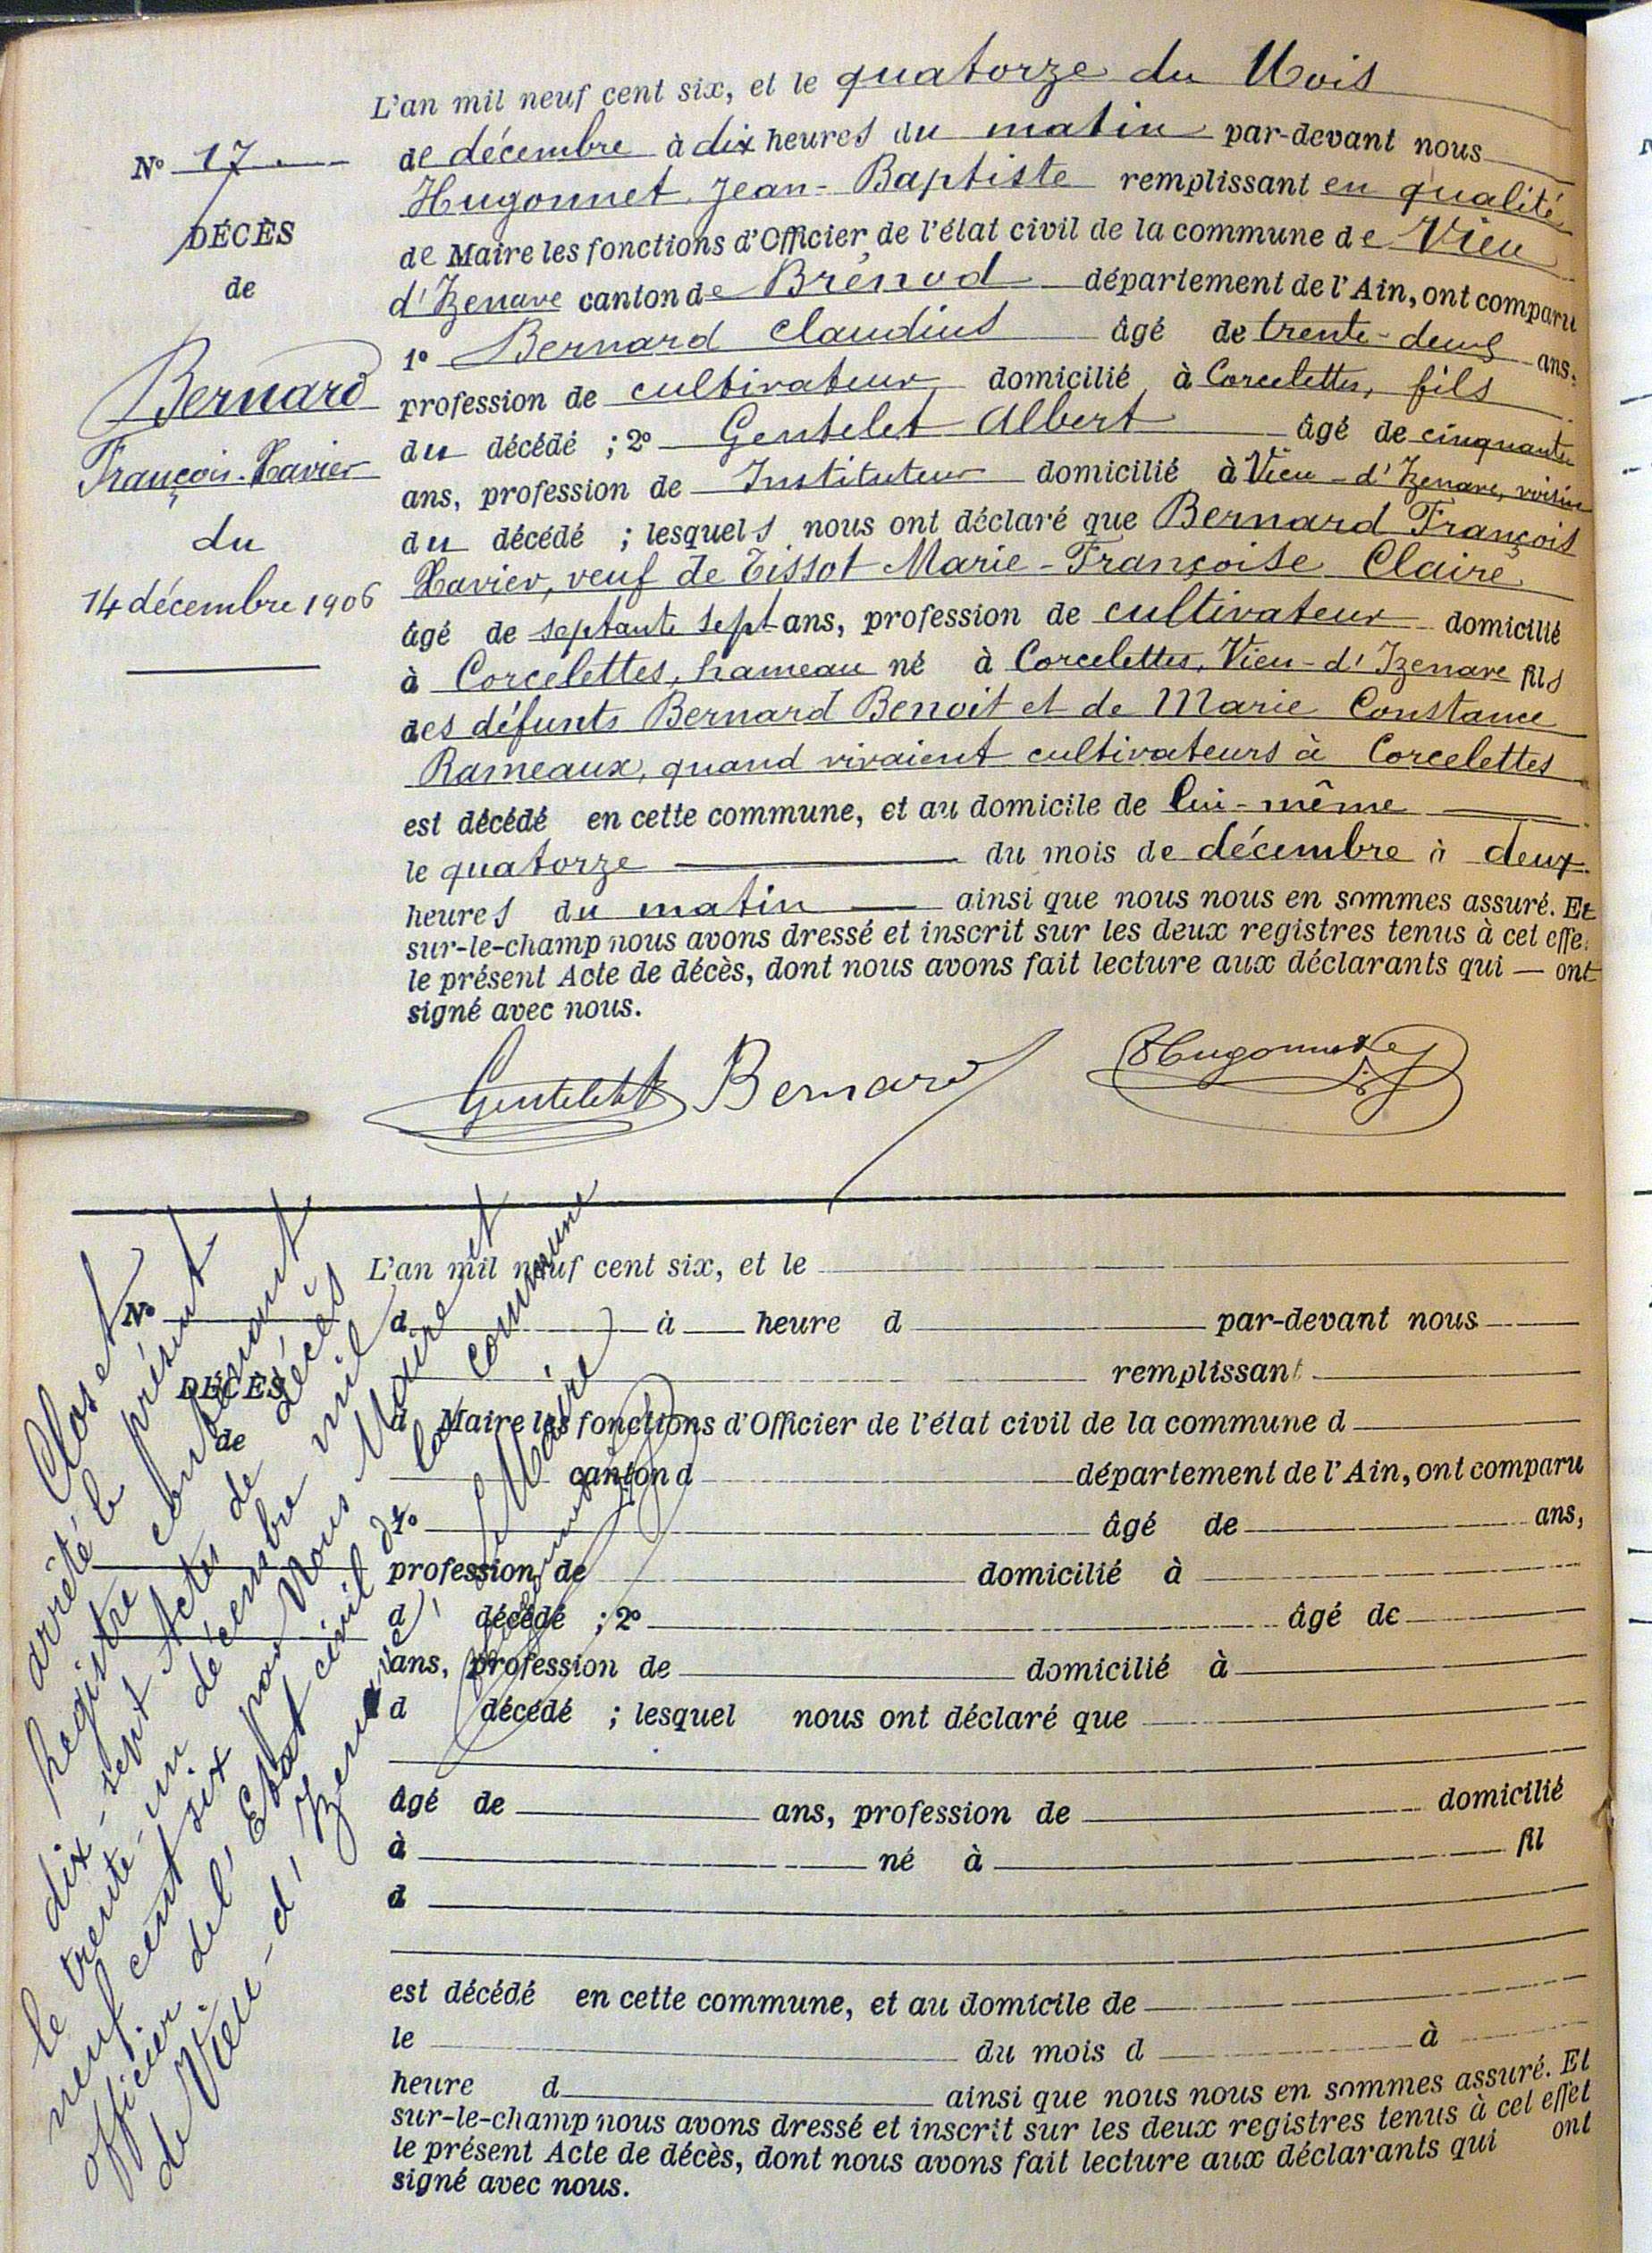 N° 17
DÉCÈS
de
Bernard
François-Xavier
du
14 décembre 1906
L'an mil neuf cent six, et le quatorze du Mois
de décembre à dix heures du matin par-devant nous
Hugonnet Jean-Baptiste remplissant en qualité
de Maire les fonctions d'Officier de l'état civil de la commune de Vieu
d'Izenave canton de Brénod département de l'Ain, ont comparu
1° Bernard Claudius âgé de trente-deux ans,
profession de cultivateur domicilié à Corcelettes, fils
du décédé ; 2° Gentelet Albert âgé de cinquante
ans, profession de Instituteur domicilié à Vieu-d'Izenave, voisin
du décédé ; lesquels nous ont déclaré que Bernard François
Xavier, veuf de Tissot Marie-Françoise Claire
âgé de septante sept ans, profession de cultivateur domicilié
à Corcelettes, hameau né à Corcelettes, Vieu-d'Izenave fils
des défunts Bernard Benoit et de Marie Constance
Rameaux, quand vivaient cultivateurs à Corcelettes
est décédé en cette commune, et au domicile de lui-même
le quatorze du mois de décembre à deux
heures du matin ainsi que nous nous en sommes assuré. Et
sur-le-champ nous avons dressé et inscrit sur les deux registres tenus à cet effe
le présent Acte de décès, dont nous avons fait lecture aux déclarants qui — ont
signé avec nous.
Gentelet Bernard Hugonnet
N°
DÉCÈS
de
Clos et
arrêté le présent
registre contenant
dix-sept Actes de décès
le trente-un décembre mil
neuf cent six par Nous Maire et
officier de l'Etat civil de la commune
de Vieu-d'Izenave, Le Maire
Hugonnet
L'an mil neuf cent six, et le
d à heure d par-devant nous
remplissant
d Maire les fonctions d'Officier de l'état civil de la commune d
canton d département de l'Ain, ont comparu
1° âgé de ans,
profession de domicilié à
d décédé ; 2° âgé de
ans, profession de domicilié à
d décédé ; lesquel nous ont déclaré que
âgé de ans, profession de domicilié
à né à fil
d
est décédé en cette commune, et au domicile de
le du mois d à
heure d ainsi que nous nous en sommes assuré. Et
sur-le-champ nous avons dressé et inscrit sur les deux registres tenus à cet effet
le présent Acte de décès, dont nous avons fait lecture aux déclarants qui ont
signé avec nous.